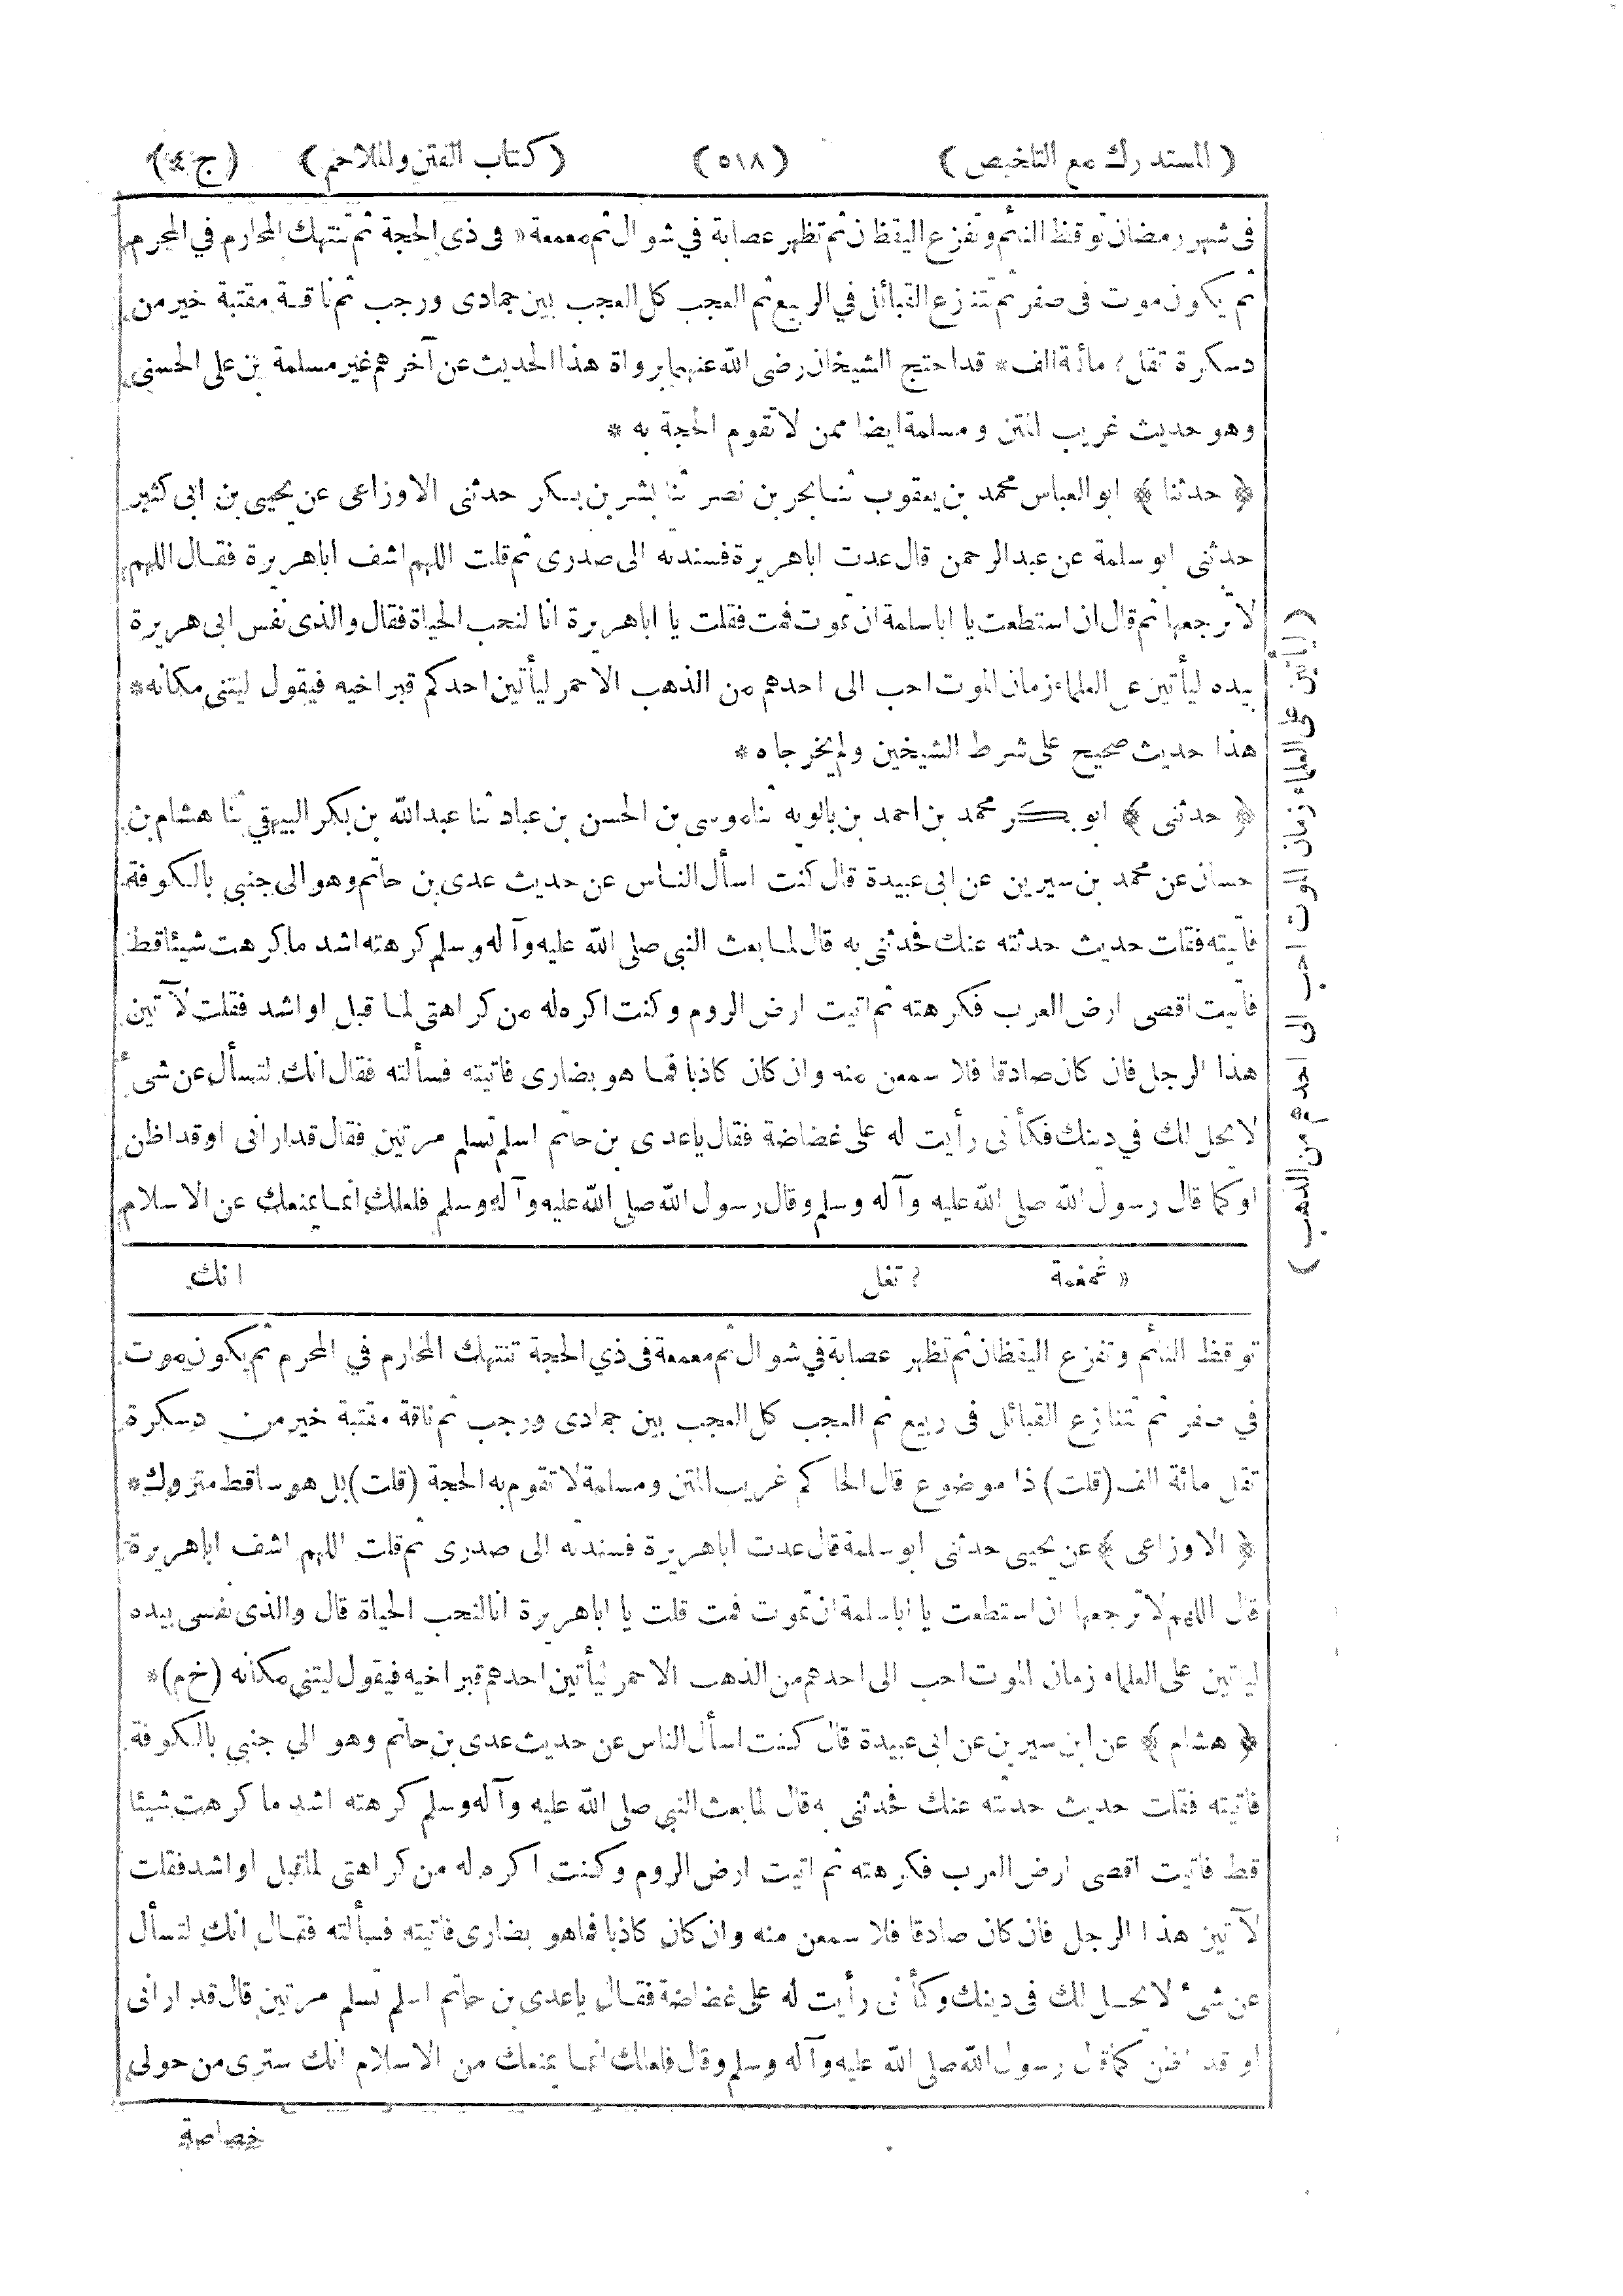 ( المستدرك مع التلخيص ) ( ٥١٨ ) ( كتاب الفتن والملاحم ) ( ج ٤ )
فى شهر رمضان توقظ النائم وتفزع اليقظان ثم تظهر عصابة في شوال ثم معمعة « فى ذى الحجة ثم تنتهك المحارم في المحرم
ثم يكون موت فى صفر ثم تتنازع القبائل في الربيع ثم العجب كل العجب بين جمادى ورجب ثم ناقة مقتبة خير من
دسكرة تقل ؟ مائة الف * قد احتج الشيخان رضى الله عنهما برواة هذا الحديث عن آخرهم غير مسلمة بن على الحسنى
وهو حديث غريب المتن ومسلمة ايضا ممن لا تقوم الحجة به *
﴿ حدثنا ﴾ ابو العباس محمد بن يعقوب ثنا بحر بن نصر ثنا بشر بن بكر حدثنى الاوزاعى عن يحيى بن ابى كثير
حدثنى ابو سلمة عن عبد الرحمن قال عدت اباهريرة فسندته الى صدرى ثم قلت اللهم اشف اباهريرة فقال اللهم
لا ترجعها ثم قال ان استطعت يا اباسلمة ان تموت فمت فقلت يا اباهريرة انا لنحب الحياة فقال والذى نفس ابى هريرة
بيده ليأتين على العلماء زمان الموت احب الى احدهم من الذهب الاحمر ليأتين احدكم قبر اخيه فيقول ليتنى مكانه *
هذا حديث صحيح على شرط الشيخين ولم يخرجاه *
﴿ حدثنى ﴾ ابو بكر محمد بن احمد بن بالويه ثنا موسى بن الحسن بن عباد ثنا عبدالله بن بكر البيهقي ثنا هشام بن
حسان عن محمد بن سيرين عن ابى عبيدة قال كنت اسأل الناس عن حديث عدى بن حاتم وهو الى جنبي بالكوفة
فأتيته فقلت حديث حدثته عنك فحدثنى به قال لما بعث النبي صلى الله عليه وآله وسلم كرهته اشد ما كرهت شيئا قط
فأتيت اقصى ارض العرب فكرهته ثم اتيت ارض الروم وكنت اكره له من كراهتى لما قبل او اشد فقلت لآتين
هذا الرجل فان كان صادقا فلا سمعن منه وان كان كاذبا فما هو بضارى فاتيته فسألته فقال انك لتسأل عن شىء
لا يحل لك في دينك فكأنى رأيت له على غضاضة فقال يا عدى بن حاتم اسلم تسلم مرتين فقال قد ارانى او قد اظن
او كما قال رسول الله صلى الله عليه وآله وسلم وقال رسول الله صلى الله عليه وآله وسلم فلعلك انما يمنعك عن الاسلام
« غمغمة ؟ تغل انك
توقظ النائم وتفزع اليقظان ثم تظهر عصابة في شوال ثم معمعة فى ذي الحجة تنتهك المحارم في المحرم ثم يكون موت
في صفر ثم تتنازع القبائل فى ربيع ثم العجب كل العجب بين جمادى ورجب ثم ناقة مقتبة خير من دسكرة
تقل مائة الف (قلت) ذا موضوع قال الحاكم غريب المتن ومسلمة لا تقوم به الحجة (قلت) بل هو ساقط متروك *
﴿ الاوزاعى ﴾ عن يحيى حدثنى ابو سلمة قال عدت اباهريرة فسندته الى صدرى ثم قلت اللهم اشف اباهريرة
قال اللهم لا ترجعها ان استطعت يا اباسلمة ان تموت فمت قلت يا اباهريرة انا لنحب الحياة قال والذى نفسى بيده
لياتين على العلماء زمان الموت احب الى احدهم من الذهب الاحمر ليأتين احدهم قبر اخيه فيقول ليتنى مكانه (خ م) *
﴿ هشام ﴾ عن ابن سيرين عن ابى عبيدة قال كنت اسأل الناس عن حديث عدى بن حاتم وهو الى جنبي بالكوفة
فاتيته فقلت حديث حدثته عنك فحدثنى به قال لما بعث النبي صلى الله عليه وآله وسلم كرهته اشد ما كرهت شيئا
قط فاتيت اقصى ارض العرب فكرهته ثم اتيت ارض الروم وكنت اكره له من كراهتى لما قبل او اشد فقلت
لآتين هذا الرجل فان كان صادقا فلا سمعن منه وان كان كاذبا فما هو بضارى فاتيته فسألته فقال انك لتسأل
عن شىء لا يحل لك فى دينك وكأنى رأيت له على غضاضة فقال يا عدى بن حاتم اسلم تسلم مرتين قال قد ارانى
او قد اظن كما قال رسول الله صلى الله عليه وآله وسلم وقال فلعلك انما يمنعك من الاسلام انك سترى من حولى
خصاصة
( ليأتين على العلماء زمان الموت احب الى احدهم من الذهب )